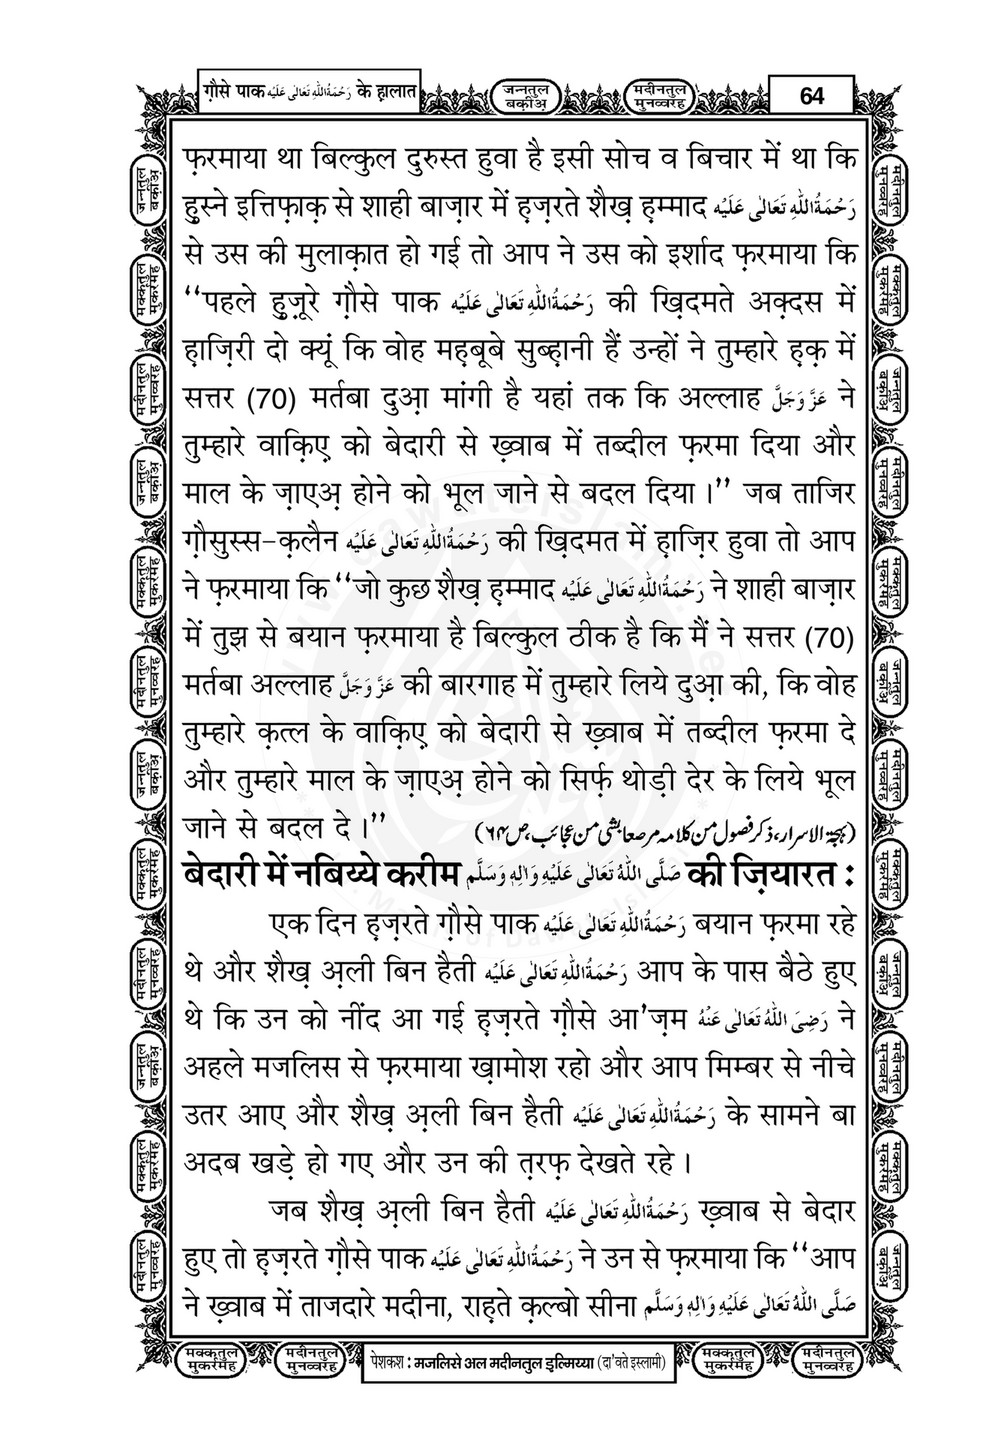 ग़ौसे पाक رَحْمَۃُاللّٰہِ تَعَالٰی عَلَیْہ के हालात
जन्नतुल बक़ीअ़
मदीनतुल मुनव्वरह
64
फ़रमाया था बिल्कुल दुरुस्त हुवा है इसी सोच व बिचार में था कि
हुस्ने इत्तिफ़ाक़ से शाही बाज़ार में ह़ज़रते शैख़ ह़म्माद رَحْمَۃُاللّٰہِ تَعَالٰی عَلَیْہ
से उस की मुलाक़ात हो गई तो आप ने उस को इर्शाद फ़रमाया कि
‘‘पहले हुज़ूरे ग़ौसे पाक رَحْمَۃُاللّٰہِ تَعَالٰی عَلَیْہ की ख़िदमते अक़्दस में
ह़ाज़िरी दो क्यूं कि वोह मह़बूबे सुब्ह़ानी हैं उन्हों ने तुम्हारे ह़क़ में
सत्तर (70) मर्तबा दुआ़ मांगी है यहां तक कि अल्लाह عَزَّ وَجَلَّ ने
तुम्हारे वाक़िए़ को बेदारी से ख़्वाब में तब्दील फ़रमा दिया और
माल के ज़ाएअ़ होने को भूल जाने से बदल दिया ।’’ जब ताजिर
ग़ौसुस्स-क़लैन رَحْمَۃُاللّٰہِ تَعَالٰی عَلَیْہ की ख़िदमत में ह़ाज़िर हुवा तो आप
ने फ़रमाया कि ‘‘जो कुछ शैख़ ह़म्माद رَحْمَۃُاللّٰہِ تَعَالٰی عَلَیْہ ने शाही बाज़ार
में तुझ से बयान फ़रमाया है बिल्कुल ठीक है कि मैं ने सत्तर (70)
मर्तबा अल्लाह عَزَّ وَجَلَّ की बारगाह में तुम्हारे लिये दुआ़ की, कि वोह
तुम्हारे क़त्ल के वाक़िए़ को बेदारी से ख़्वाब में तब्दील फ़रमा दे
और तुम्हारे माल के ज़ाएअ़ होने को सिर्फ़ थोड़ी देर के लिये भूल
जाने से बदल दे ।’’ (بہجۃ الاسرار، ذکر فصول من کلامہ مرصعا بشی من عجائب، ص۶۴)
बेदारी में नबिय्ये करीम صَلَّی اللّٰہُ تَعَالٰی عَلَیْہِ وَاٰلِہٖ وَسَلَّم की ज़ियारत :
एक दिन ह़ज़रते ग़ौसे पाक رَحْمَۃُاللّٰہِ تَعَالٰی عَلَیْہ बयान फ़रमा रहे
थे और शैख़ अ़ली बिन हैती رَحْمَۃُاللّٰہِ تَعَالٰی عَلَیْہ आप के पास बैठे हुए
थे कि उन को नींद आ गई ह़ज़रते ग़ौसे आ'ज़म رَضِیَ اللّٰہُ تَعَالٰی عَنْہُ ने
अहले मजलिस से फ़रमाया ख़ामोश रहो और आप मिम्बर से नीचे
उतर आए और शैख़ अ़ली बिन हैती رَحْمَۃُاللّٰہِ تَعَالٰی عَلَیْہ के सामने बा
अदब खड़े हो गए और उन की त़रफ़ देखते रहे ।
जब शैख़ अ़ली बिन हैती رَحْمَۃُاللّٰہِ تَعَالٰی عَلَیْہ ख़्वाब से बेदार
हुए तो ह़ज़रते ग़ौसे पाक رَحْمَۃُاللّٰہِ تَعَالٰی عَلَیْہ ने उन से फ़रमाया कि ‘‘आप
ने ख़्वाब में ताजदारे मदीना, राह़ते क़ल्बो सीना صَلَّی اللّٰہُ تَعَالٰی عَلَیْہِ وَاٰلِہٖ وَسَلَّم
मक्कतुल मुकर्रमह
मदीनतुल मुनव्वरह
पेशकश : मजलिसे अल मदीनतुल इ़ल्मिय्या (दा'वते इस्लामी)
मक्कतुल मुकर्रमह
मदीनतुल मुनव्वरह